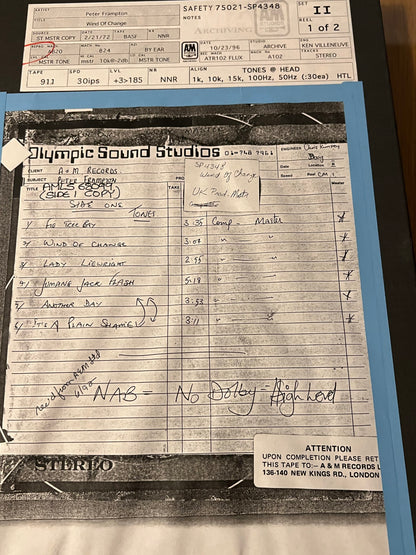 ARTIST Peter Frampton
TITLE Wind Of Change
SAFETY 75021-SP4348
NOTES
A&M
ARCHIVING
SET II
REEL 1 of 2
ST MSTR COPY
DATE 2/21/72
TAPE BASE
NR NNR
A&M
DATE 10/23/96
STUDIO ARCHIVE
ENG KEN VILLENEUVE
REPRO MACH A820
MACH # 624
AZ BY EAR
REC MACH ATR102 FLUX
MACH # A102
TRACKS STEREO
MSTR TONE
MSTR TONE
TAPE 911
SPD 30ips
LVL +3>185
NR NNR
TONES @ HEAD
1k, 10k, 15k, 100Hz, 50Hz (:30ea) HTL
Olympic Sound Studios 01-748 7961
CLIENT A + M RECORDS
ARTIST PETER FRAMPTON
TITLE AMLS 68099
(SIDE 1 COPY)
TAKE
SP4348
Wind of Change
UK Prod. Mstr
ENGINEER Chris Kimsey
Date
Location
Speed
Reel
Master
SIDE ONE
TONES
1/ FIG TREE BAY 3.35 Comp - Master
2/ WIND OF CHANGE 3.07 " "
3/ LADY LIERIGHT 2.55 " "
4/ JUMPING JACK FLASH 5.18 " "
5/ ANOTHER DAY 3.53 " "
6/ IT'S A PLAIN SHAME 3.11 " "
rec'd from A&M
NAB - No Dolby - High Level
STEREO
ATTENTION
UPON COMPLETION PLEASE RET
THIS TAPE TO:- A & M RECORDS L
136-140 NEW KINGS RD., LONDON